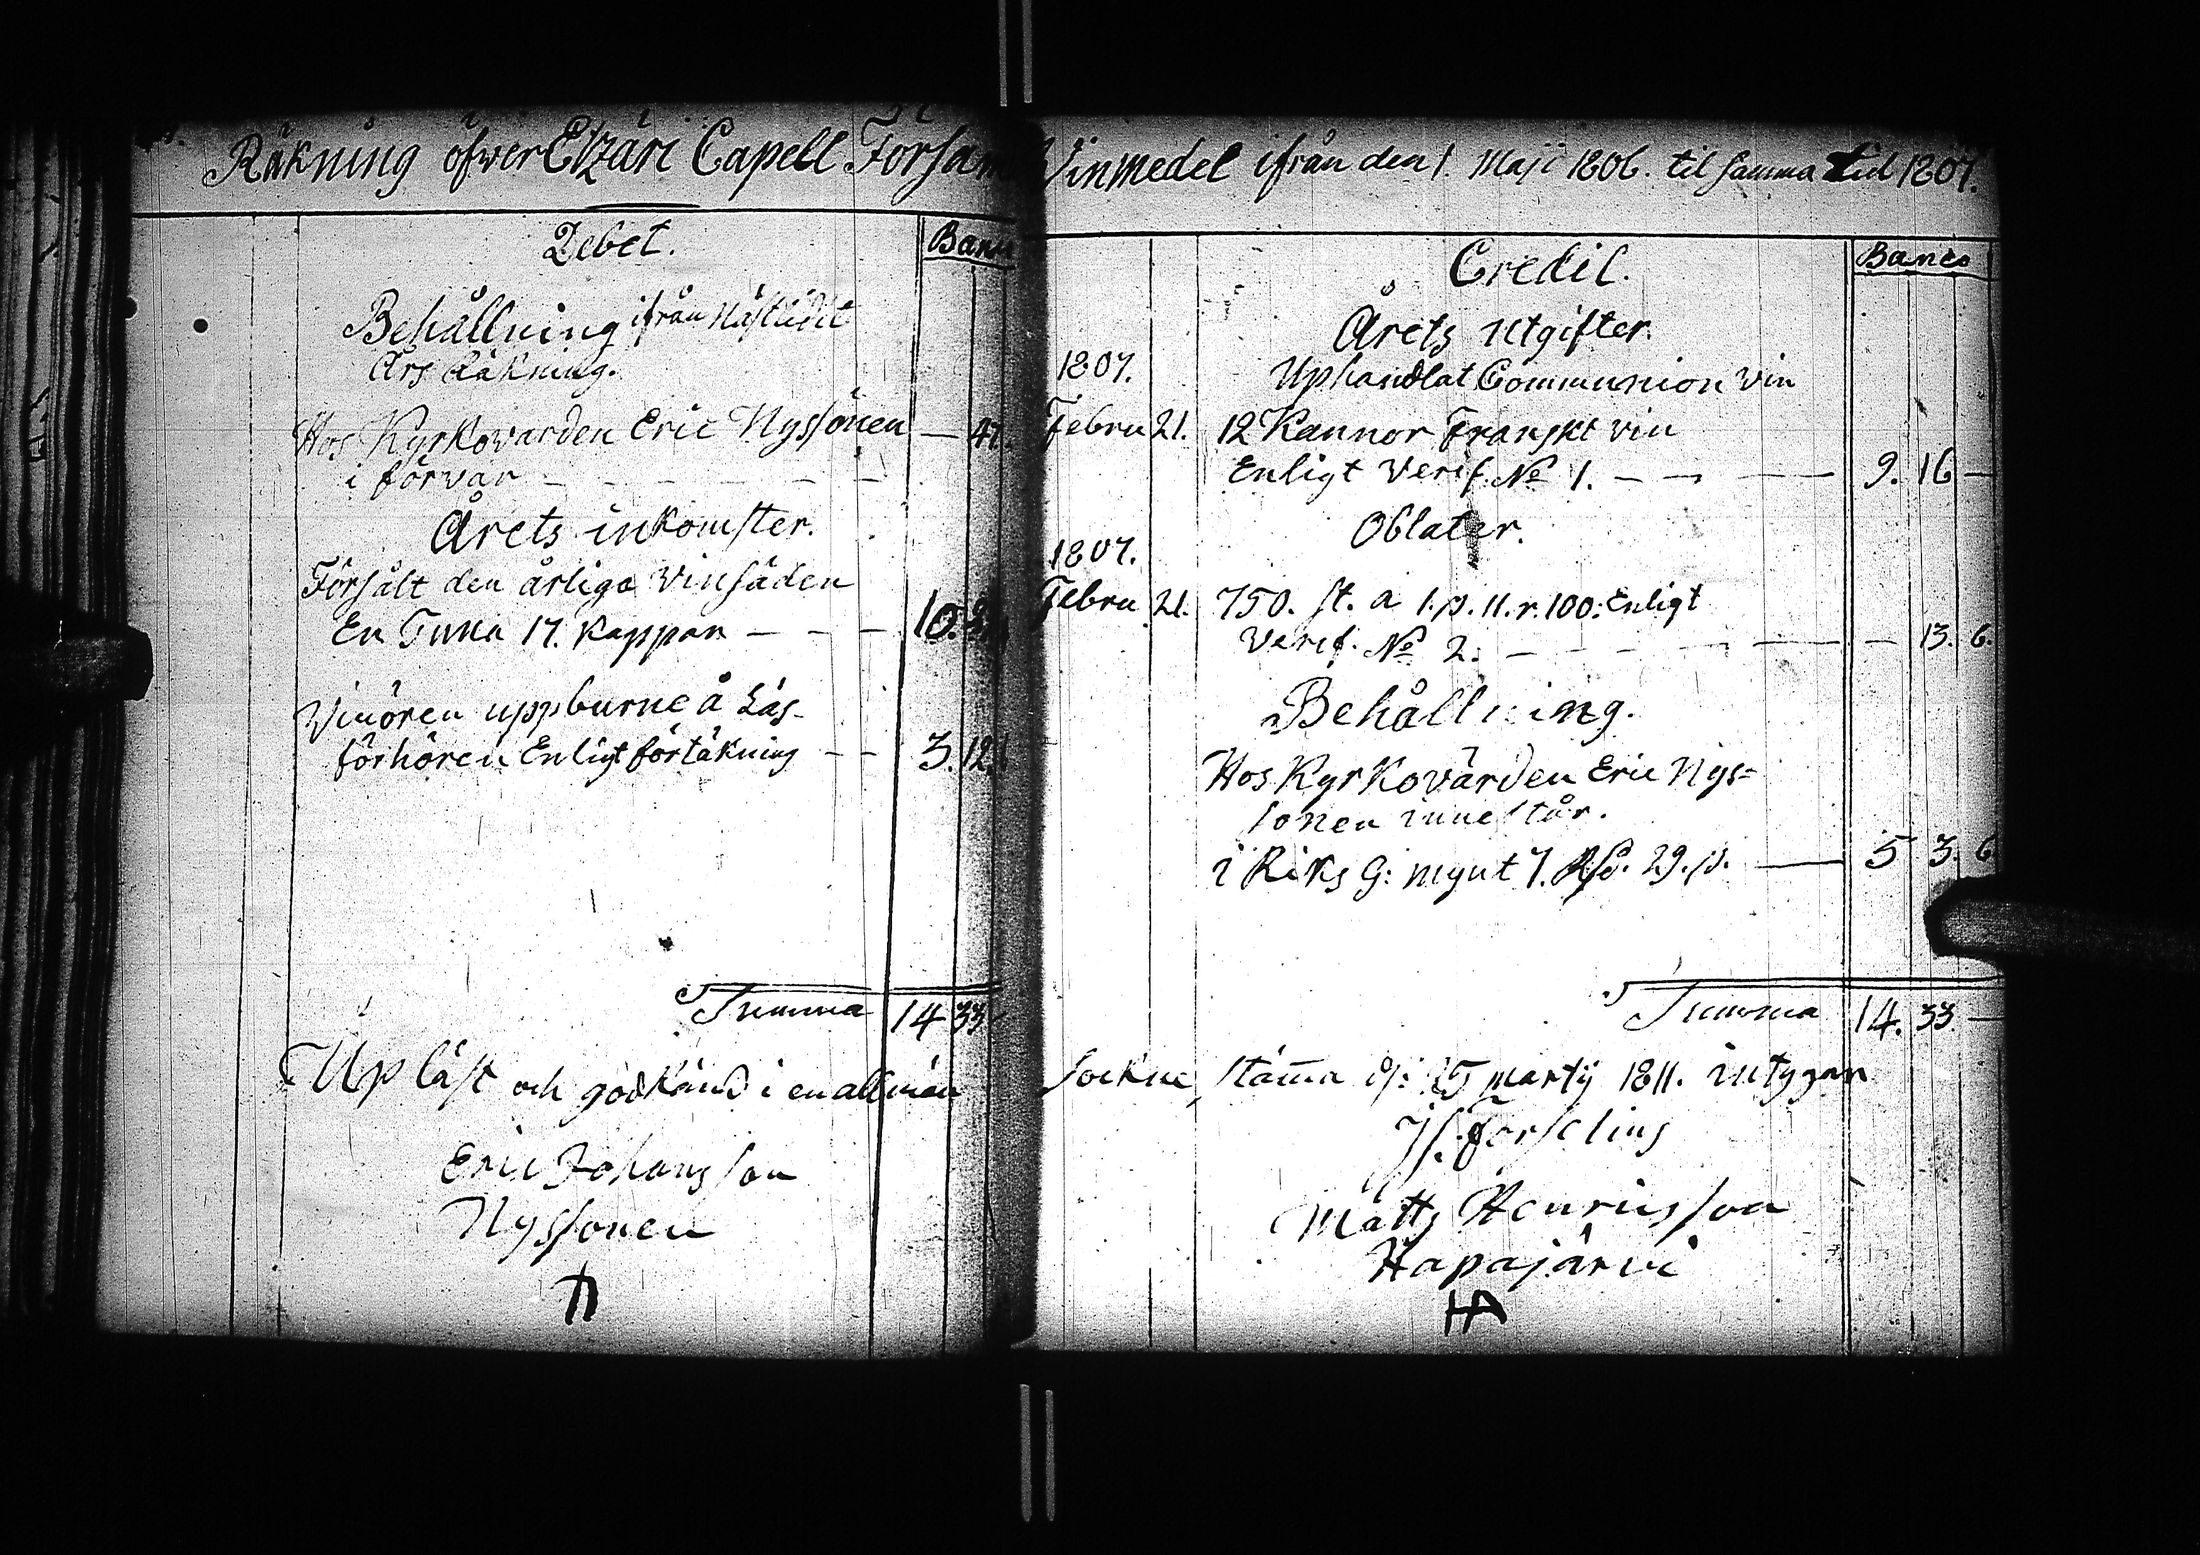 Räkning öfwer Etzäri Capell Försam
Debet.
Banco
Behållning ifrån Nästledit
Års Räkning.
Hos Kyrkovärden Eric Nyssönen — 47.
i förvar — — — — — —
Årets inkomster.
Försålt den årliga Vinsäden
En Tuna 17. Kappar — — — 10.
Vinören uppburne å Läs-
förhören Enligt förtäkning — — 3. 12.
Summa 14 33 -
Upläst och godkänd i en allmän
Eric Johansson
Nyssonen
Vinmedel ifrån den 1. Maji 1806. til samma tid 1807.
Credit.
Banco
Årets Utgifter.
1807. Uphandlat Communion Vin
Febru 21. 12 Kannor Franskt vin
Enligt Verif. No 1. — — — 9. 16 —
Oblater.
1807.
Febru 21. 750. st. a 1. s. 11. r. 100: Enligt
Verif. No 2. — — — — — 13. 6.
Behållning.
Hos Kyrkovärden Eric Nys=
sonen innestår.
i Riks G: mynt 7. Rd. 29. s. — 5 3. 6
Summa 14. 33 —
Sockne stäma d: 25 Martij 1811. intygar
Is. Forselius
Matts Henricsson
Hapajärvi
HA